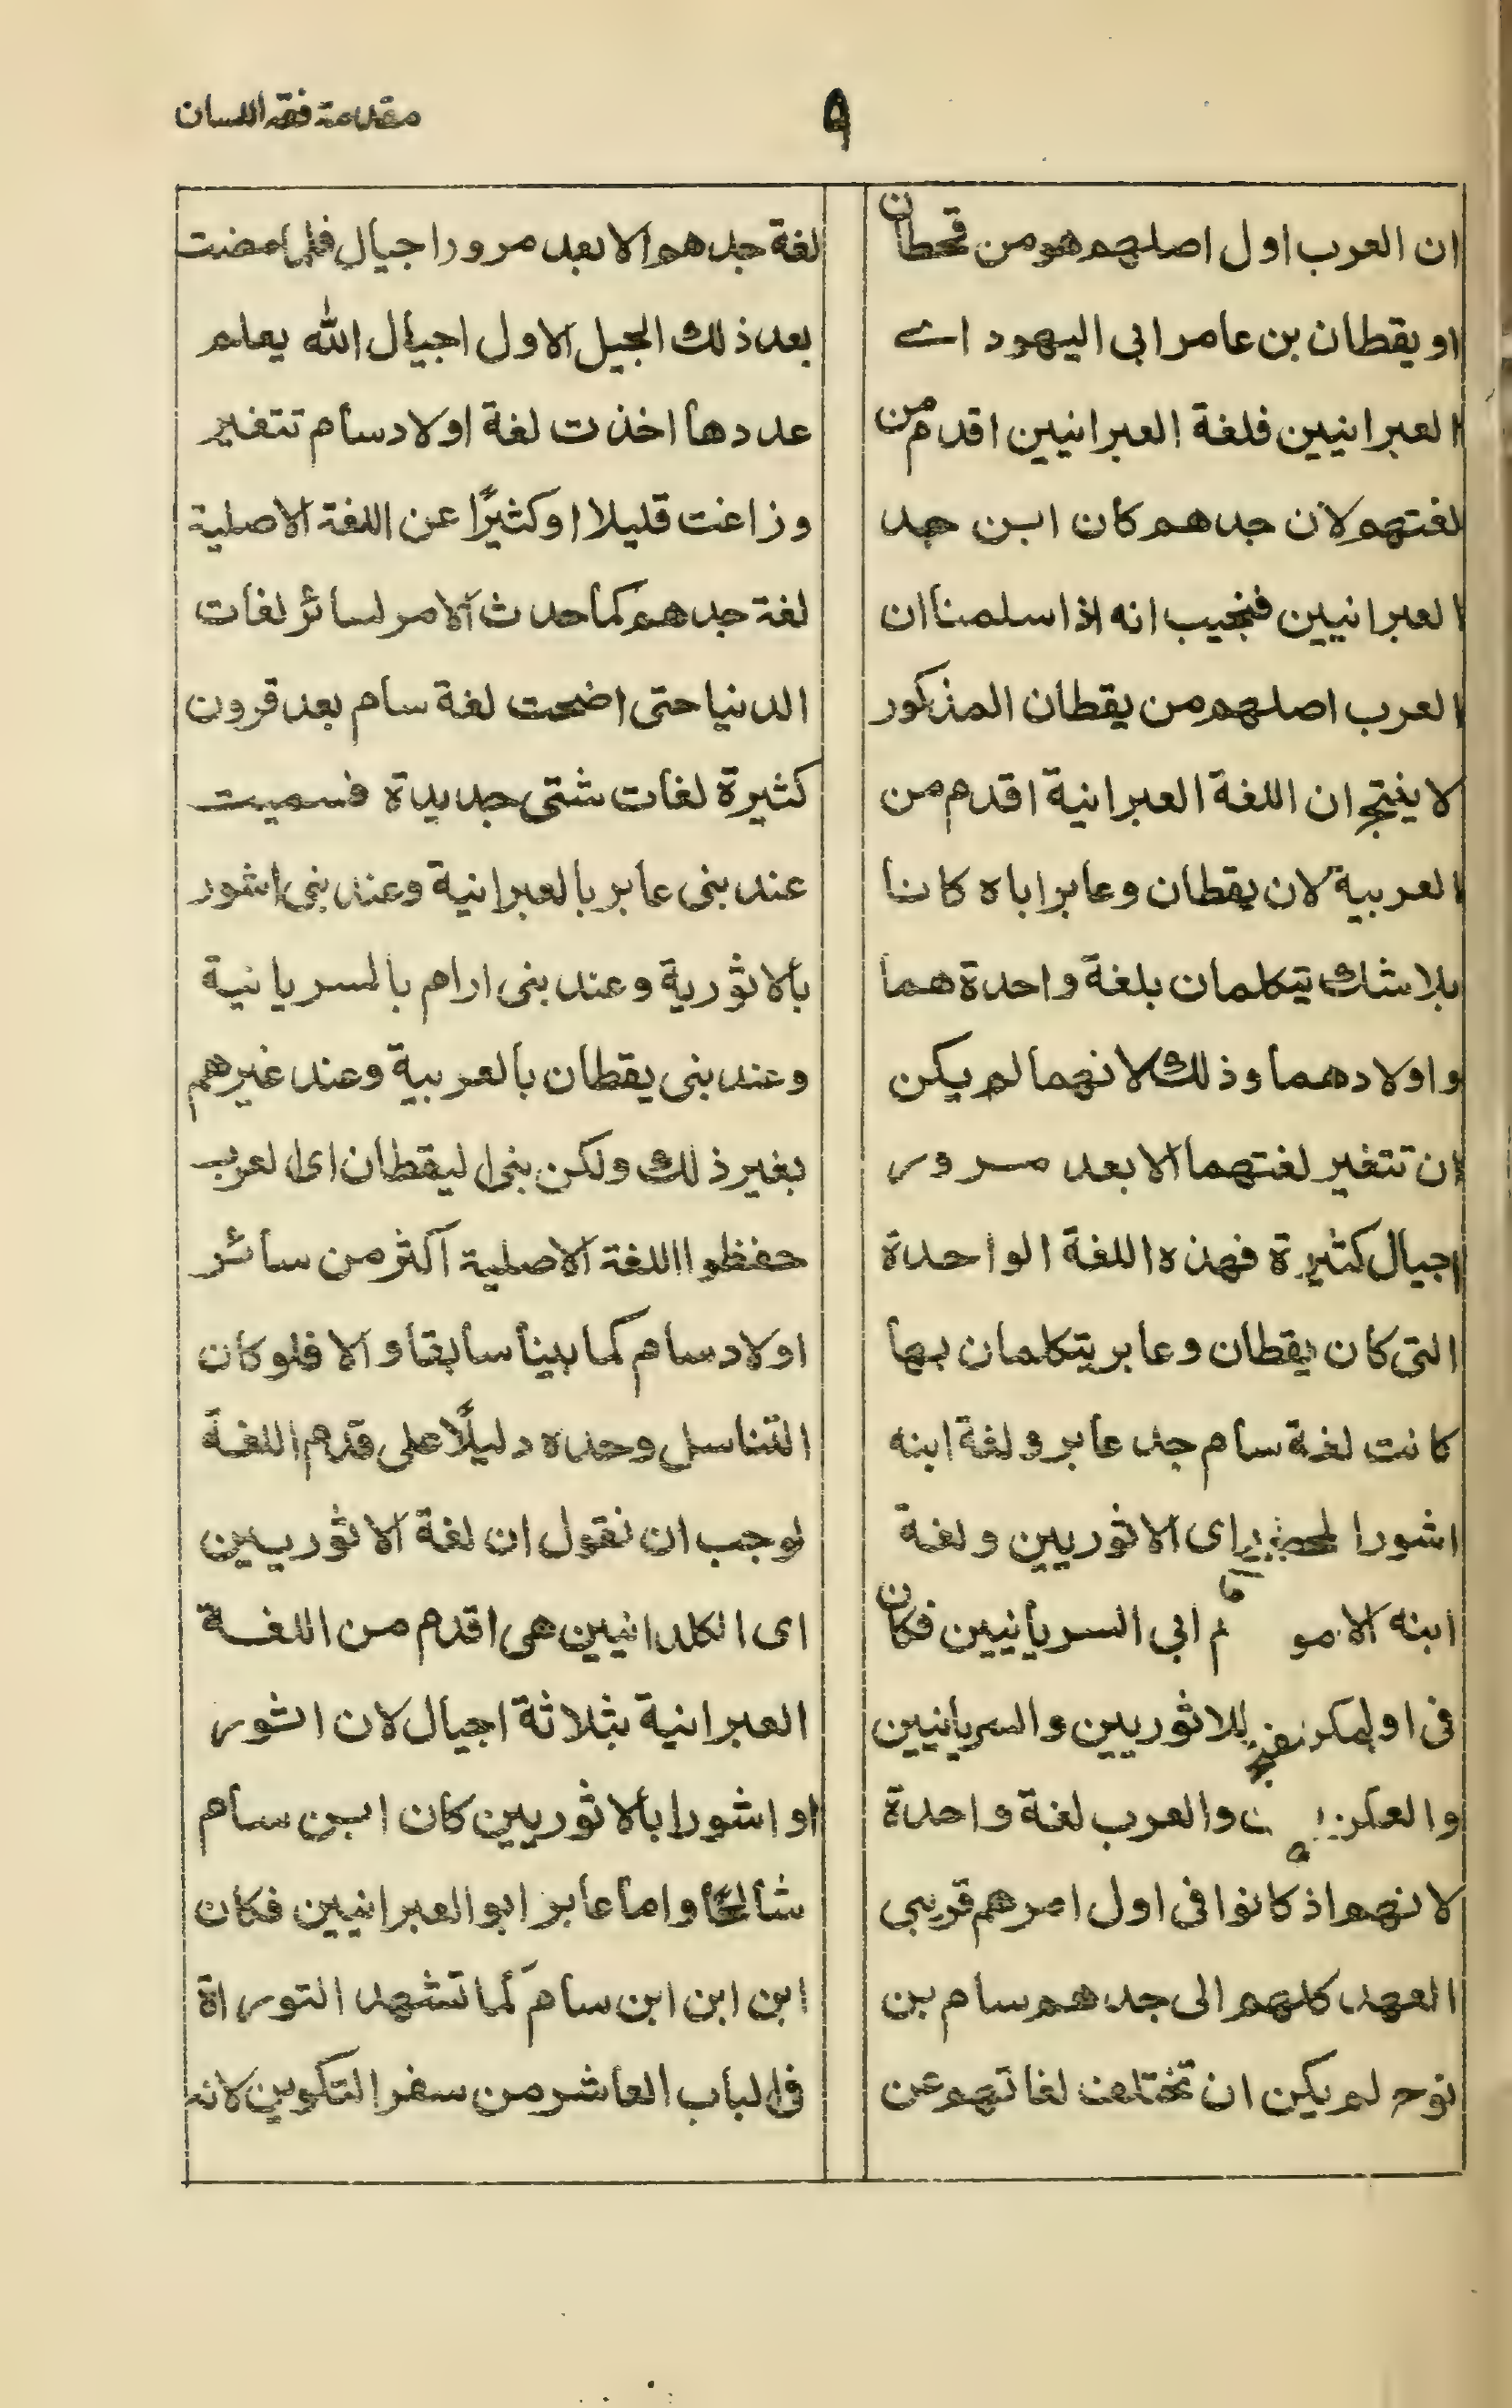 مقدمة فقه اللسان
٩
ان العرب اول اصلهم هو من قحطان
او يقطان بن عامر ابى اليهود اے
العبرانيين فلغة العبرانيين اقدم من
لغتهم لان جدهم كان ابن جد
العبرانيين فنجيب انه اذا سلمنا ان
العرب اصلهم من يقطان المذكور
لا ينتج ان اللغة العبرانية اقدم من
العربية لان يقطان وعابر اباه كانا
بلا شك يتكلمان بلغة واحدة هما
واولادهما وذلك لانهما لم يكن
ان تتغير لغتهما الا بعد مرور
اجيال كثيرة فهذه اللغة الواحدة
التى كان يقطان وعابر يتكلمان بها
كانت لغة سام جد عابر ولغة ابنه
اشور اى الاثوريين ولغة
ابنه ابى السريانيين فكان
فى للاثوريين والسريانيين
والعرب لغة واحدة
لانهم اذ كانوا فى اول امرهم قريبى
العهد كلهم الى جدهم سام بن
نوح لم يكن ان تختلف لغاتهم عن
لغة جدهم الا بعد مرور اجيال فلما مضت
بعد ذلك الجيل الاول اجيال الله يعلم
عددها اخذت لغة اولاد سام تتغير
وزاغت قليلا او كثيرًا عن اللغة الاصلية
لغة جدهم كما حدث الامر لسائر لغات
الدنيا حتى اضحت لغة سام بعد قرون
كثيرة لغات شتى جديدة فسميت
عند بنى عابر بالعبرانية وعند بنى اشور
بالاثورية وعند بنى ارام بالسريانية
وعند بنى يقطان بالعربية وعند غيرهم
بغير ذلك ولكن بنى ليقطان اى العرب
حفظوا اللغة الاصلية اكثر من سائر
اولاد سام كما بينا سابقا والا فلو كان
التناسل وحده دليلًا على قدم اللغة
لوجب ان نقول ان لغة الاثوريين
اى الكلدانيين هى اقدم من اللغة
العبرانية بثلاثة اجيال لان اثور
او اشور ابا الاثوريين كان ابن سام
شالحًا واما عابر ابو العبرانيين فكان
ابن ابن ابن سام كما تشهد التوراة
فى الباب العاشر من سفر التكوين لانه